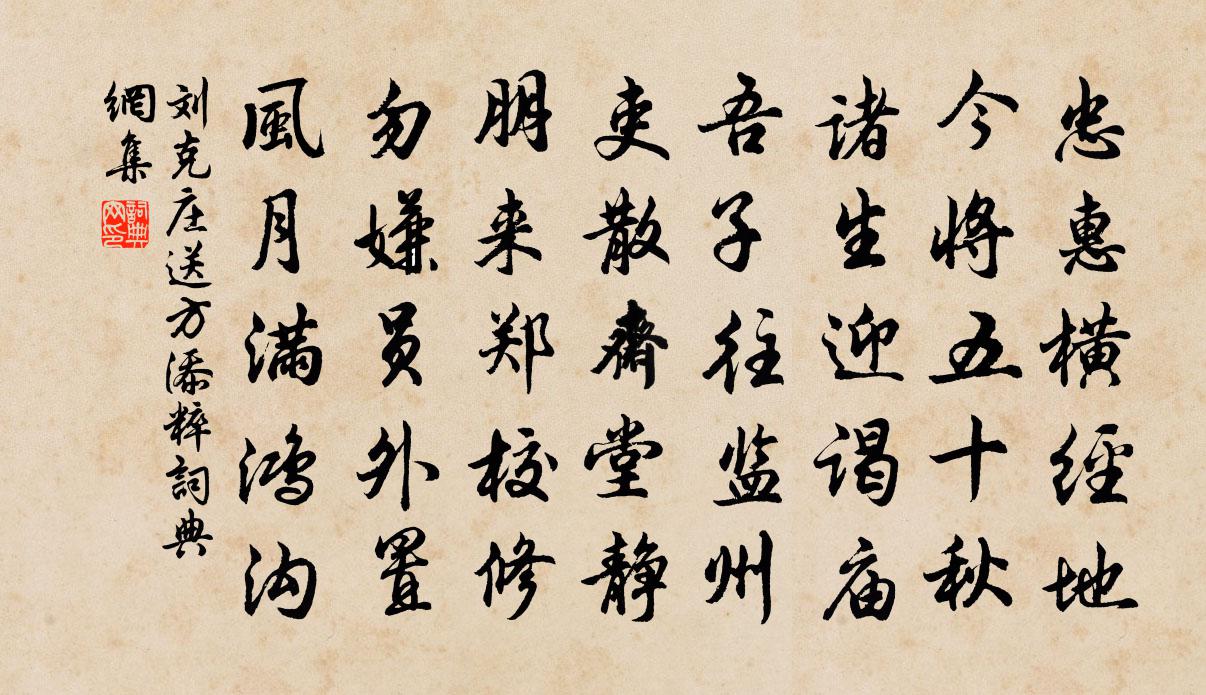 忠惠橫經地
今将五十秋
諸生迎谒庙
吾子往监州
吏散齋堂静
朋来郑校修
勿嫌员外置
風月满鸿沟
刘克庄送方添粹詞典
網集
詞典
网印